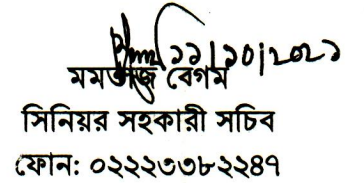 ১১/১০/২০২১
মমতাজ বেগম
সিনিয়র সহকারী সচিব
ফোন: ০২২২৩৩৮২২৪৭